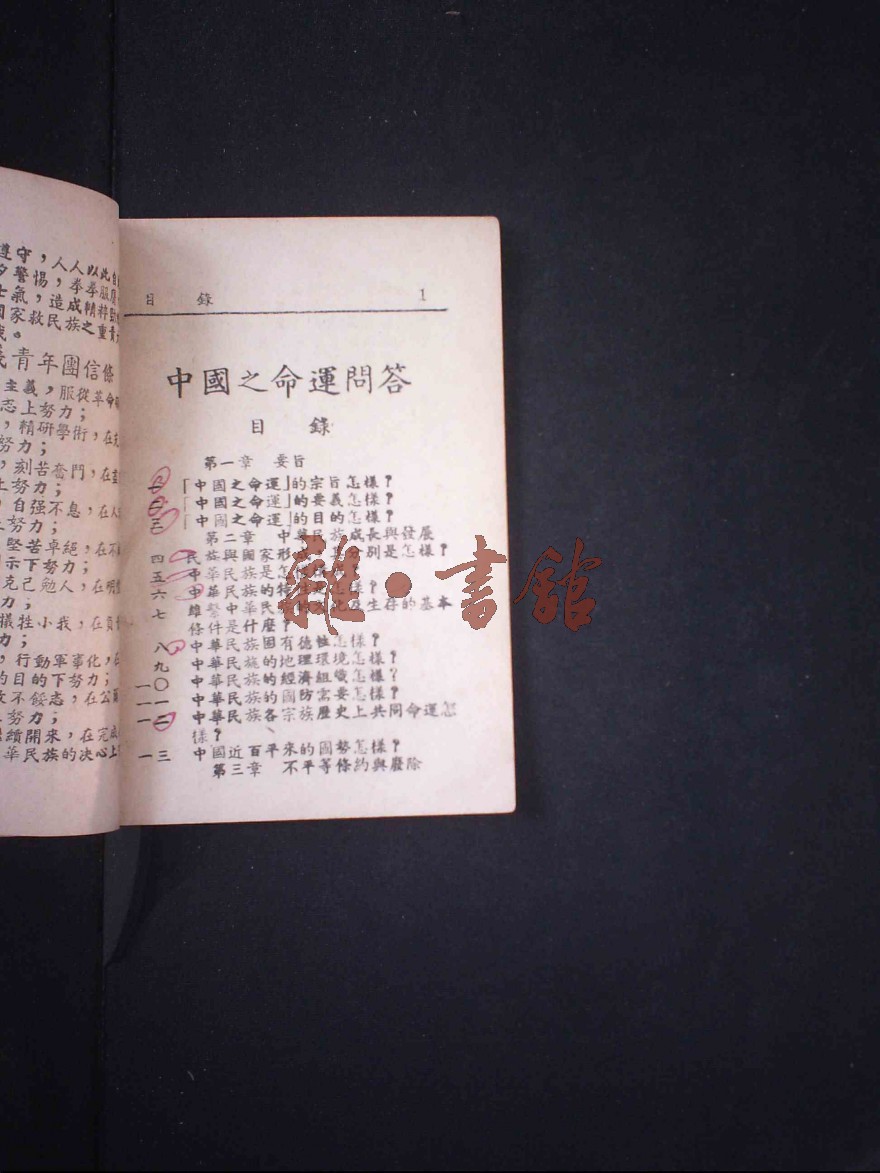 遵守，人人以此自
夕警惕，拳拳服膺
士氣，造成精粹
國家救民族之重責
哉。
義青年團信條
主義，服從革命
志上努力；
，精研學術，在
努力；
，刻苦奮鬥，在
上努力；
，自强不息，在人
上努力；
堅苦卓絕，在不
示下努力；
克己勉人，在明
力；
犧牲小我，在負
力；
，行動軍事化，在
的目的下努力；
敗不餒志，在公
上努力；
繼續開來，在完成
華民族的决心上
目 錄 1
中國之命運問答
目 錄
第一章 要旨
一 「中國之命運」的宗旨怎樣？
二 「中國之命運」的要義怎樣？
三 「中國之命運」的目的怎樣？
第二章 中華民族成長與發展
四 民族與國家形成其分別是怎樣？
五 中華民族是怎
六 中華民族的特性怎樣？
七 維繫中華民族的 化及生存的基本
條件是什麼？
八 中華民族固有德性怎樣？
九 中華民族的地理環境怎樣？
一〇 中華民族的經濟組織怎樣？
一一 中華民族的國防需要怎樣？
一二 中華民族各宗族歷史上共同命運怎
樣？
一三 中國近百平來的國勢怎樣？
第三章 不平等條約與廢除
雜·書館